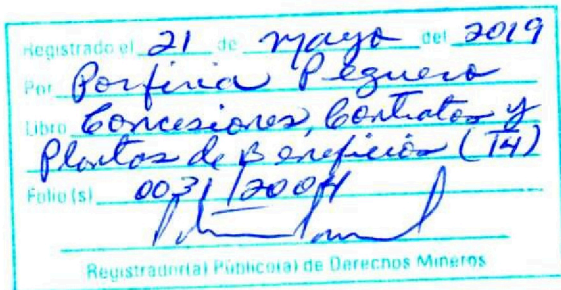 Registrado el 21 de mayo del 2019
Por Porfiria Peguero
Libro Concesiones, Contratos y
Plantas de Beneficios (T4)
Folio (s) 0031/2004
Registrador(a) Público(a) de Derechos Mineros